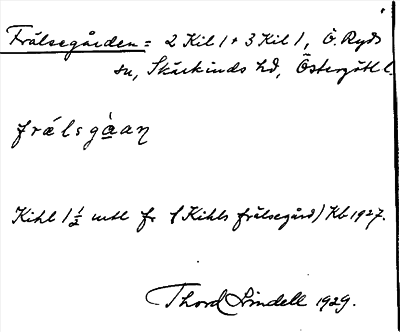 Frälsegården = 2 Kil 1 + 3 Kil 1, Ö. Ryds
sn, Skärkinds hd, Östergötl l.
frǽlsgàaɳ
Kihl 1 1/2 mtl fr (Kihls frälsegård) Kb 1927.
Thord Lindell 1929.